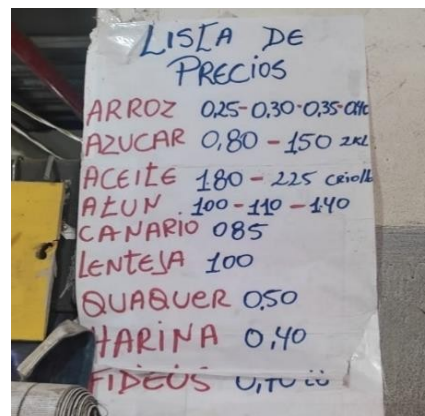 LISTA DE
PRECIOS
ARROZ 0,25-0,30-0,35-0,40
AZUCAR 0,80 - 150 2KL
ACEITE 180 - 225 criollo
ATUN 100 - 110 - 140
CANARIO 085
LENTEJA 100
QUAQUER 0,50
HARINA 0,40
FIDEOS 0,40